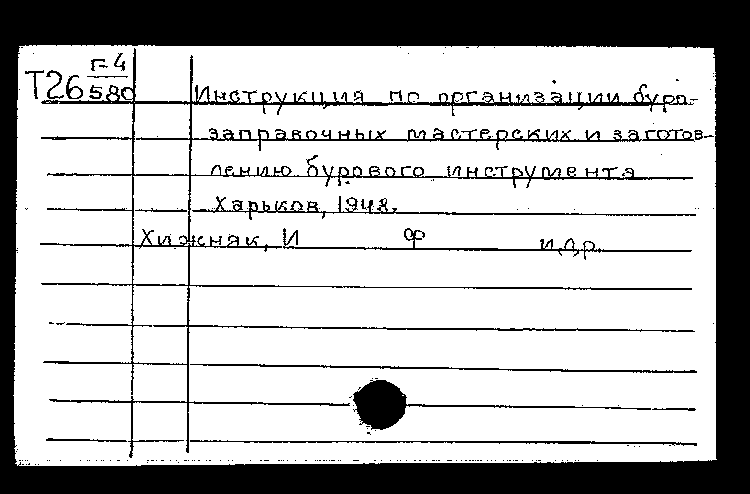 Г-4
Т26 580
Инструкция по организации буро-
заправочных мастерских и заготов-
лению бурового инструмента
Харьков, 1948.
Хижняк, И Ф и др.